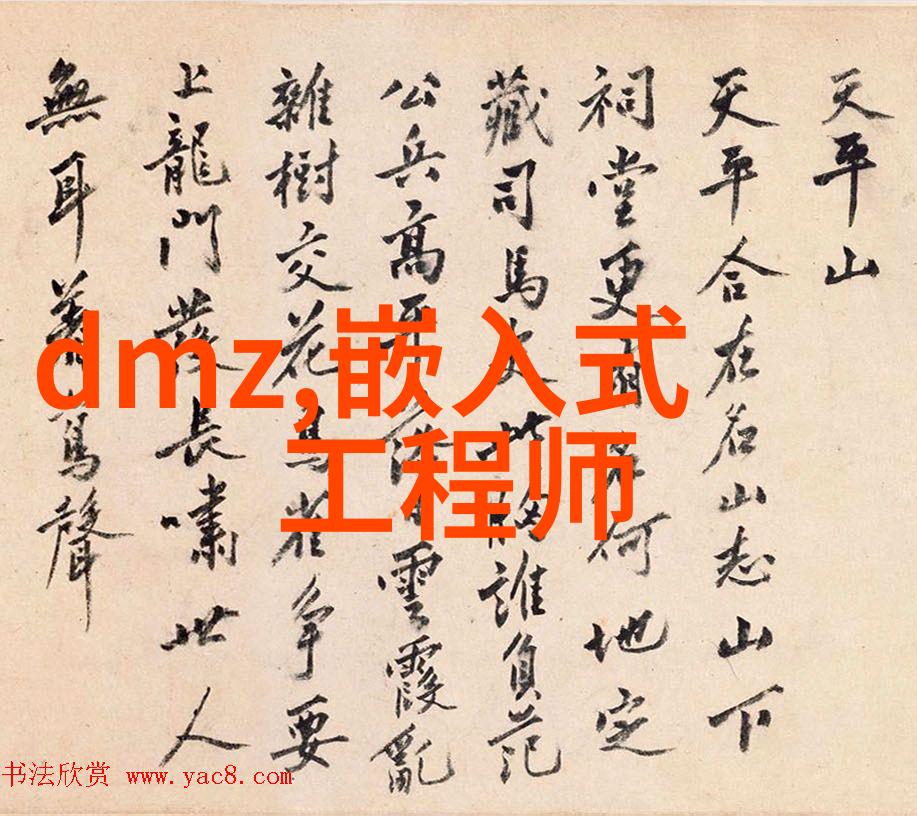 天平山
天平合在名山志山下
祠堂更何地定
藏司馬史此誰負范
公兵高雲霞亂
雜樹交花鳥雀争要
上龍門發長嘯世人
無耳聲
dmz,嵌入式
工程师
书法欣赏 www.yac8.com